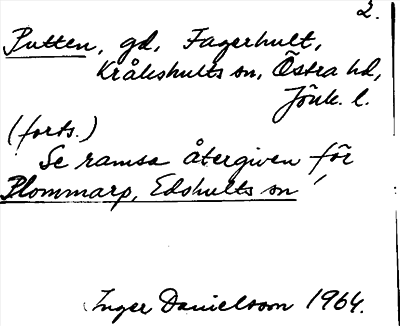 2.
Putten, gd, Fagerhult,
Kråkshults sn, Östra hd,
Jönk. l.
(forts.)
Se ramsa återgiven för
Plommarp, Edshults sn!
Inger Danielsson 1964.